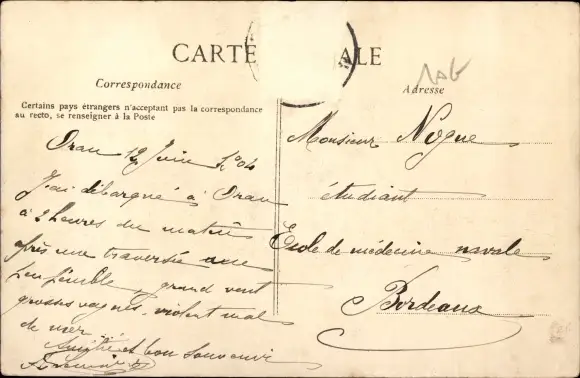 CARTE ALE
Correspondance
Adresse
Certains pays étrangers n'acceptant pas la correspondance
au recto, se renseigner à la Poste
Oran 12 Juin
J'ai débarqué à Oran
à 2 heures du matin
après une traversée une
peu pénible, grand vent
grosses vagues, violent mal
de mer.
Amitié et bon souvenir
Monsieur Nogue
étudiant
Ecole de médecine navale
Bordeaux